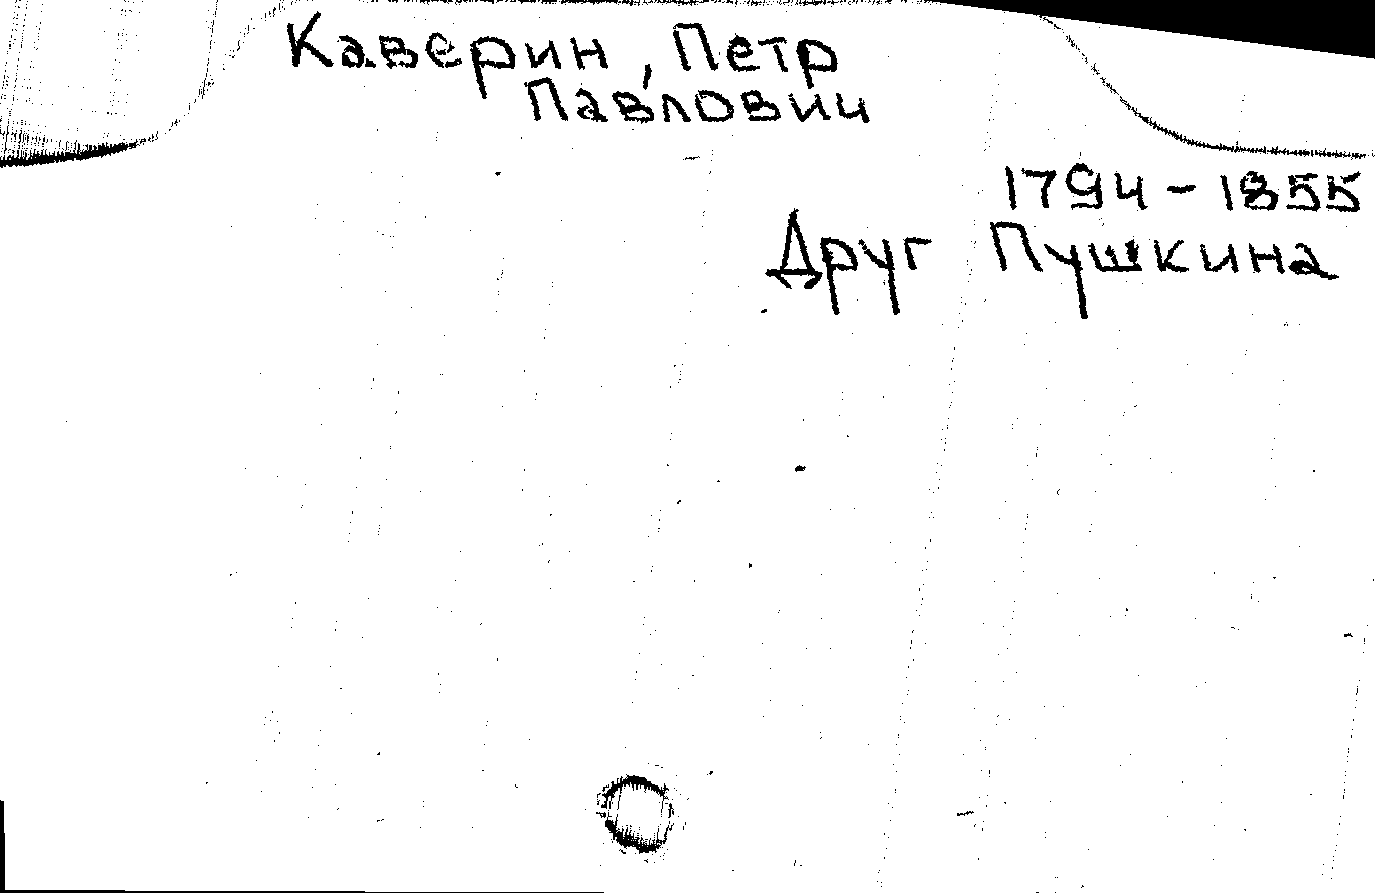 Каверин, Петр
Павлович
1794 - 1855
Друг Пушкина